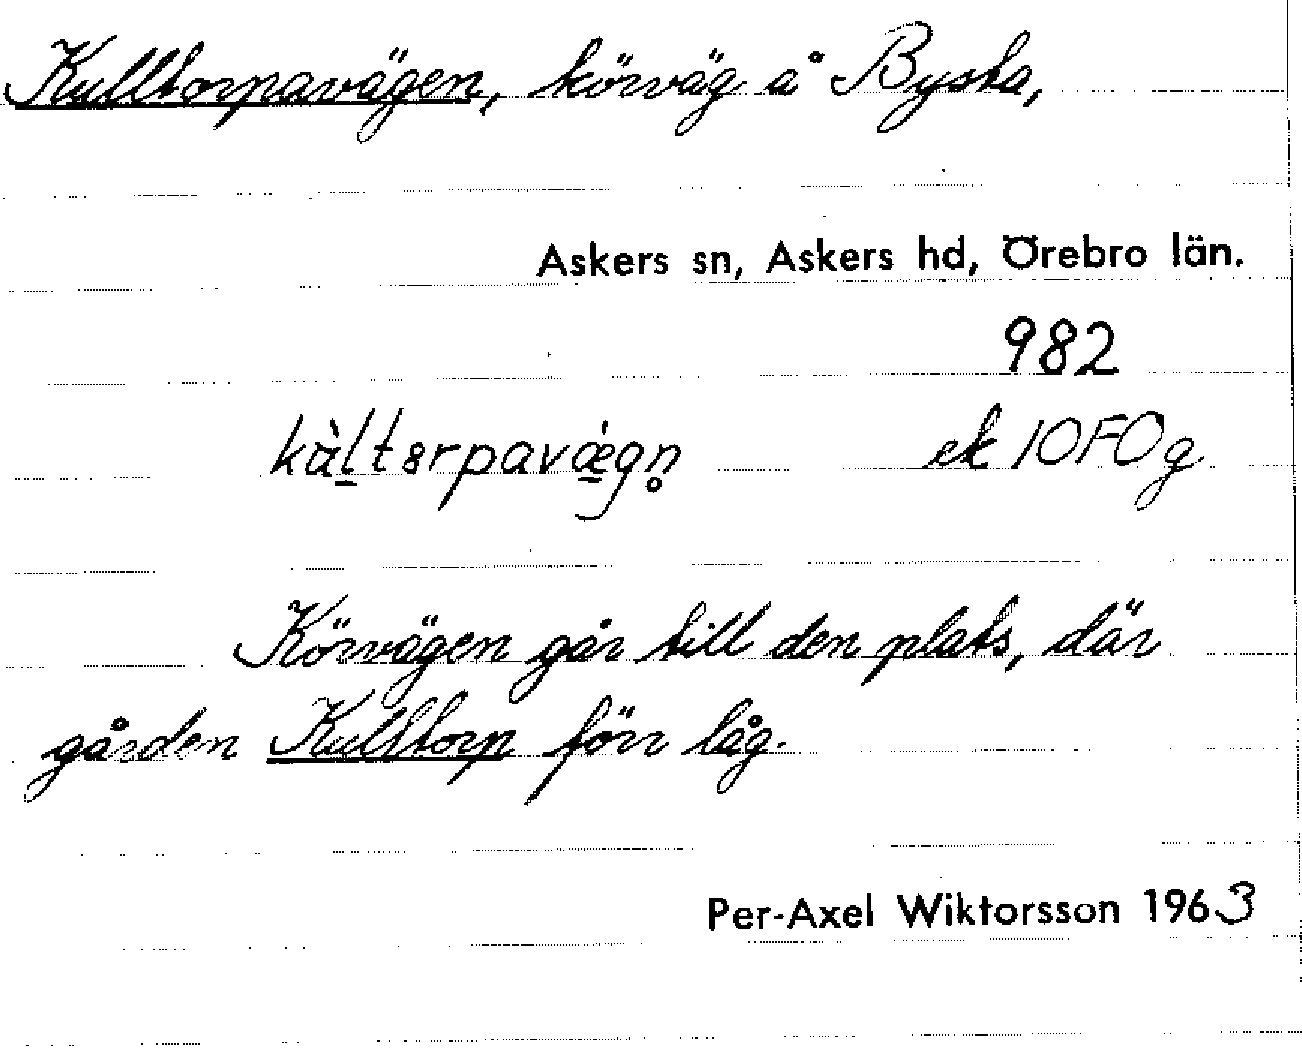 Kulltorpavägen, körväg å Bysta,
Askers sn, Askers hd, Örebro län.
982
kàltɵrpavǽgn̥ ek 10F0g
Körvägen går till den plats, där
gården Kulltorp förr låg.
Per-Axel Wiktorsson 1963